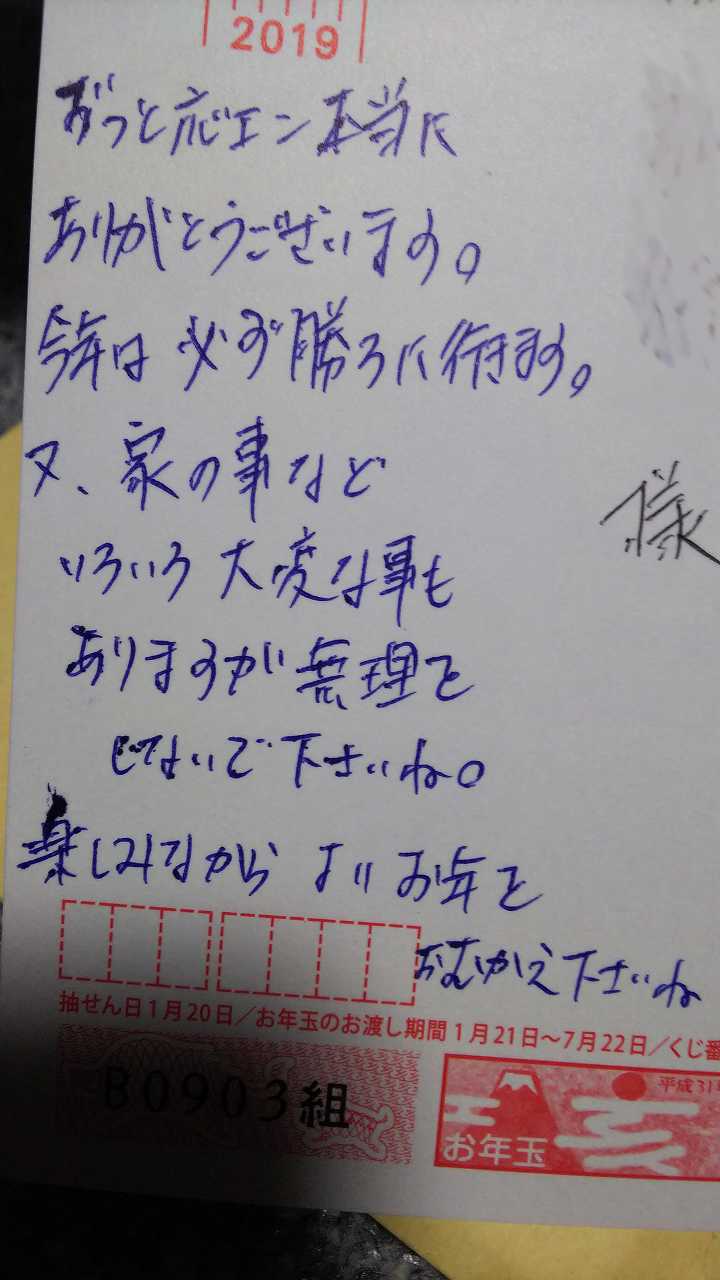 2019
ずっと応エン本当に
ありがとうございます。
今年は必ず勝ろに行きます。
又、家の事など
いろいろ大変な事も
ありますが無理を
しないで下さいね。
様
楽しみながらよいお年を
おむかえ下さいね
抽せん日1月20日／お年玉のお渡し期間1月21日〜7月22日／くじ番
B0903組
平成31
お年玉